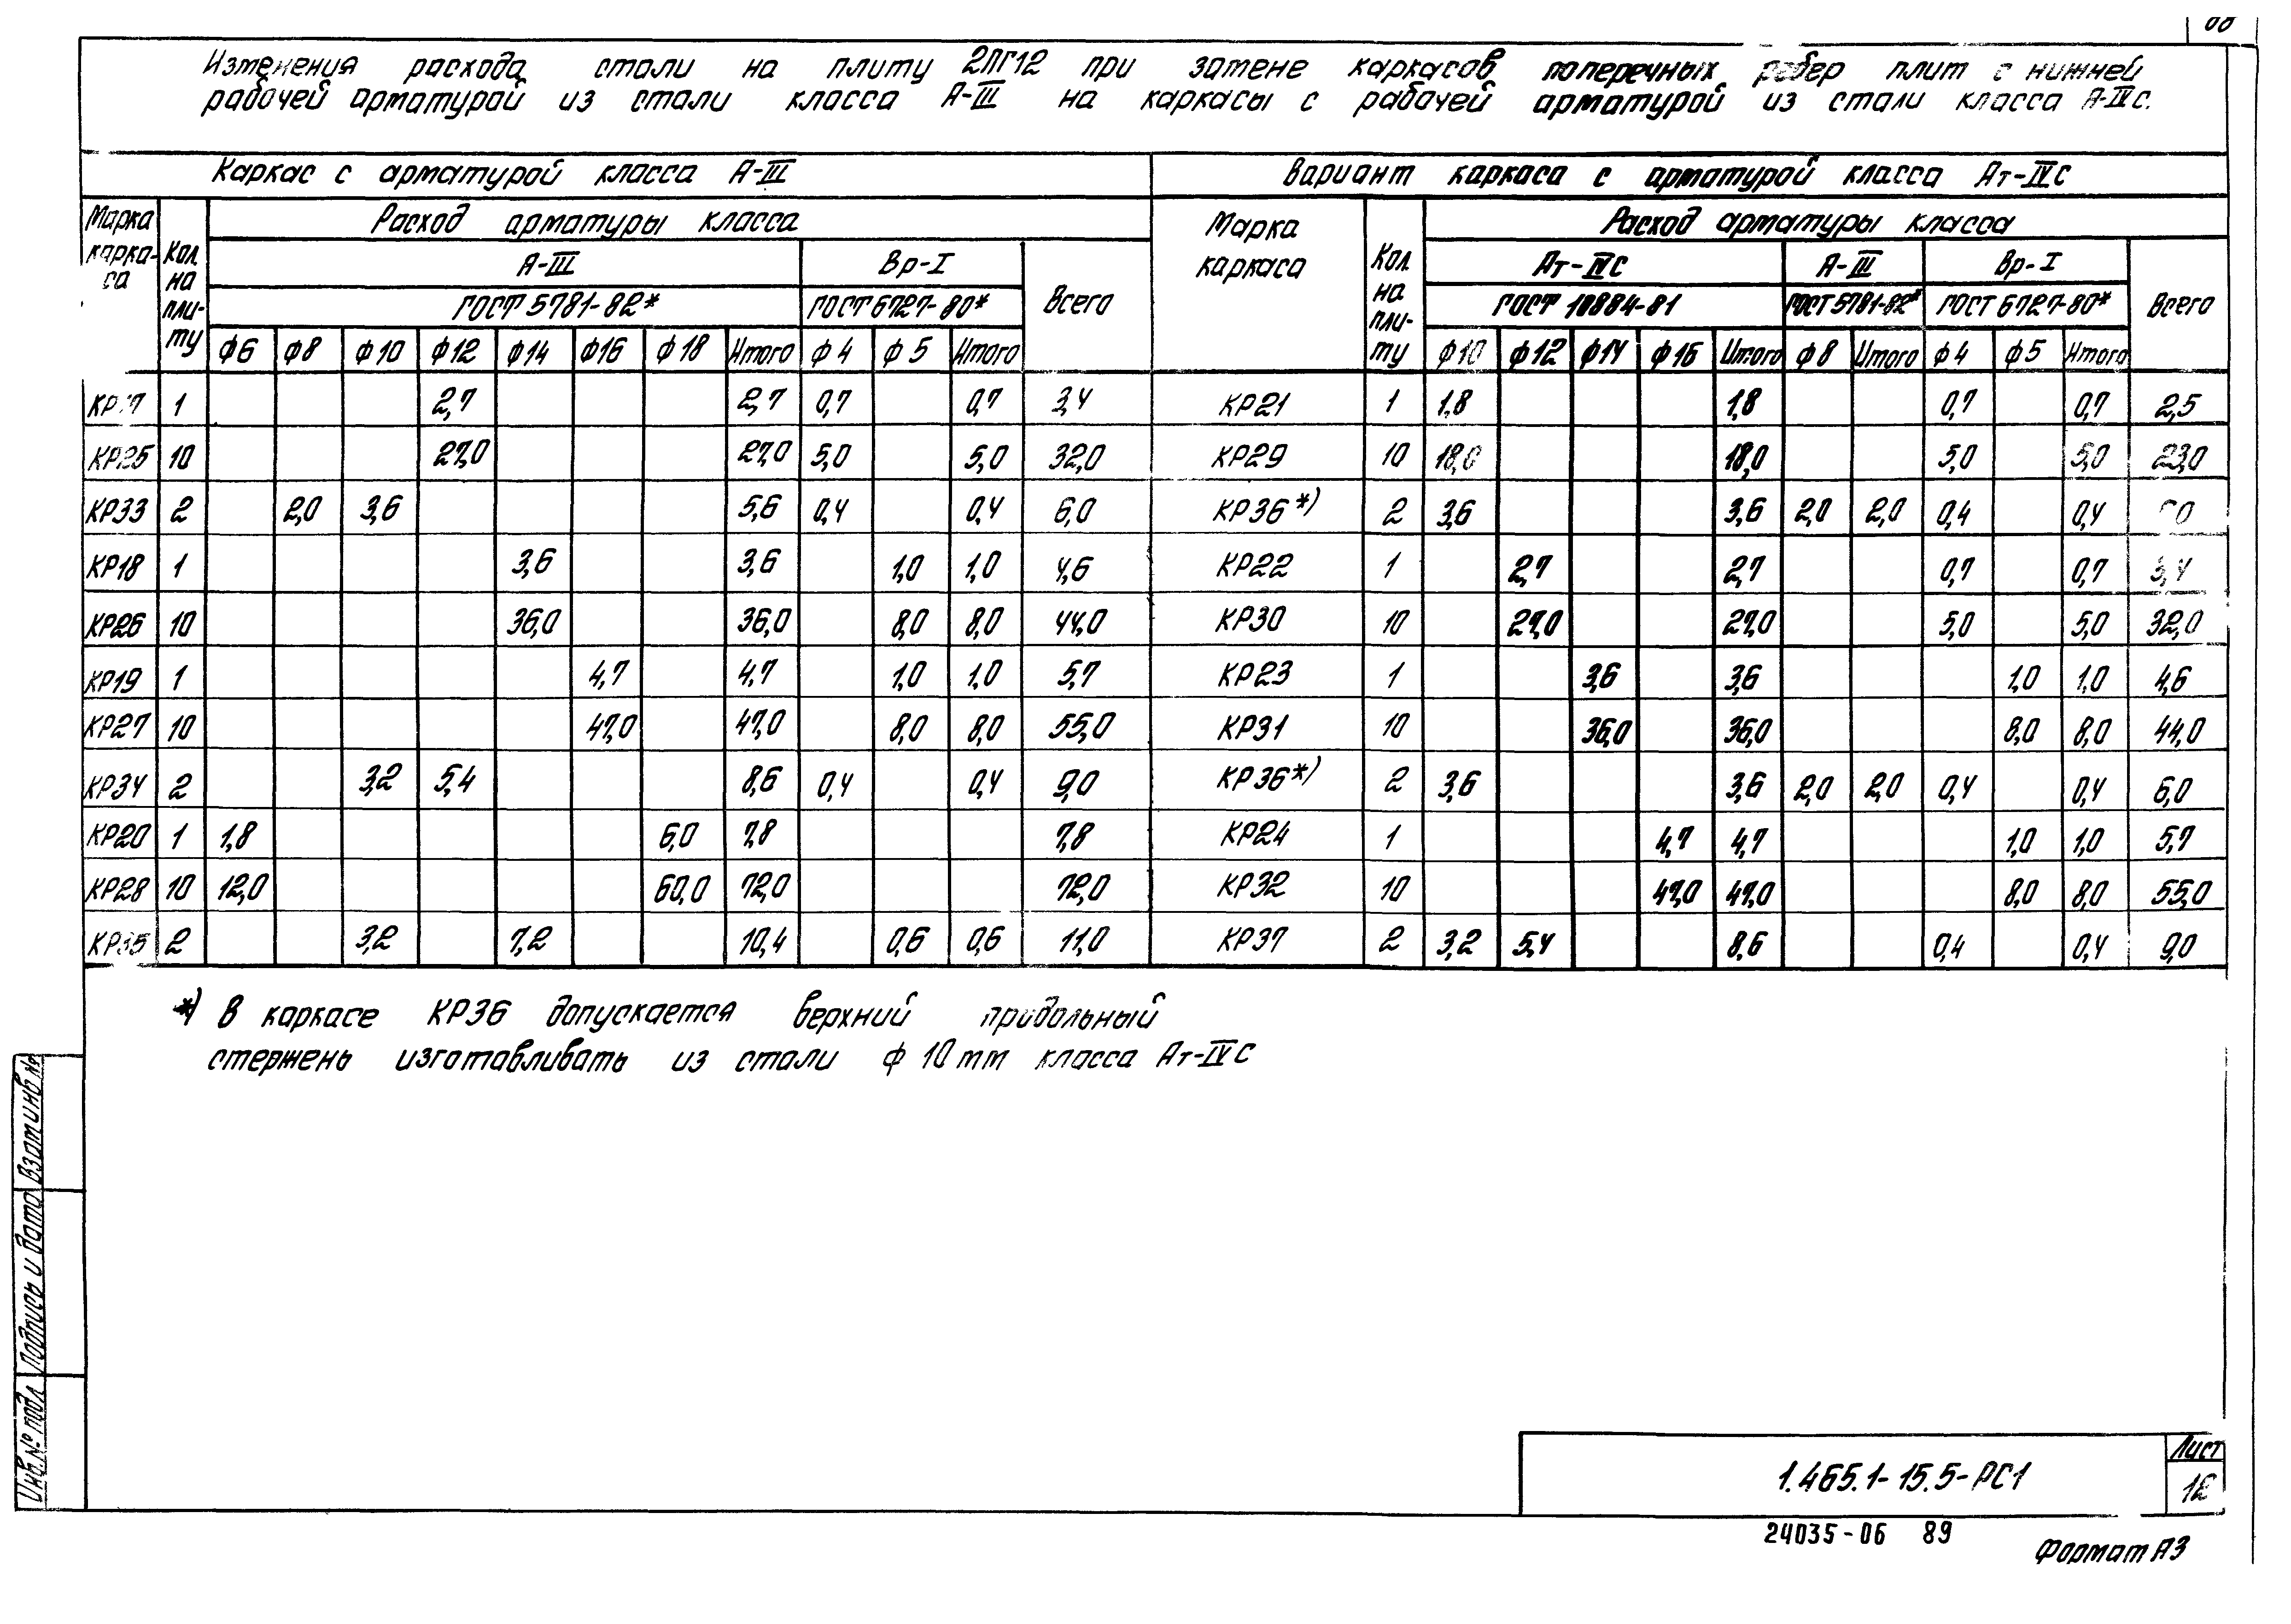 Изменения расхода стали на плиту 2ПГ12 при замене каркасов поперечных ребер плит с нижней
рабочей арматурой из стали класса А-III на каркасы с рабочей арматурой из стали класса А-IVС.
Каркас с арматурой класса А-III | Вариант каркаса с арматурой класса Ат-IVС
Марка каркаса | Кол. на плиту | Расход арматуры класса | Марка каркаса | Кол. на плиту | Расход арматуры класса
А-III | Вр-I | Всего | Ат-IVС | А-III | Вр-I | Всего
ГОСТ 5781-82* | ГОСТ 6727-80* | ГОСТ 10884-81 | ГОСТ 5781-82* | ГОСТ 6727-80*
ф6 | ф8 | ф10 | ф12 | ф14 | ф16 | ф18 | Итого | ф4 | ф5 | Итого | ф10 | ф12 | ф14 | ф16 | Итого | ф8 | Итого | ф4 | ф5 | Итого
КР17 | 1 | 2,7 | 2,7 | 0,7 | 0,7 | 3,4 | КР21 | 1 | 1,8 | 1,8 | 0,7 | 0,7 | 2,5
КР25 | 10 | 27,0 | 27,0 | 5,0 | 5,0 | 32,0 | КР29 | 10 | 18,0 | 18,0 | 5,0 | 5,0 | 23,0
КР33 | 2 | 2,0 | 3,6 | 5,6 | 0,4 | 0,4 | 6,0 | КР36*) | 2 | 3,6 | 3,6 | 2,0 | 2,0 | 0,4 | 0,4
КР18 | 1 | 3,6 | 3,6 | 1,0 | 1,0 | 4,6 | КР22 | 1 | 2,7 | 2,7 | 0,7 | 0,7 | 3,4
КР26 | 10 | 36,0 | 36,0 | 8,0 | 8,0 | 44,0 | КР30 | 10 | 27,0 | 27,0 | 5,0 | 5,0 | 32,0
КР19 | 1 | 4,7 | 4,7 | 1,0 | 1,0 | 5,7 | КР23 | 1 | 3,6 | 3,6 | 1,0 | 1,0 | 4,6
КР27 | 10 | 47,0 | 47,0 | 8,0 | 8,0 | 55,0 | КР31 | 10 | 36,0 | 36,0 | 8,0 | 8,0 | 44,0
КР34 | 2 | 3,2 | 5,4 | 8,6 | 0,4 | 0,4 | 9,0 | КР36*) | 2 | 3,6 | 3,6 | 2,0 | 2,0 | 0,4 | 0,4 | 6,0
КР20 | 1 | 1,8 | 6,0 | 7,8 | 7,8 | КР24 | 1 | 4,7 | 4,7 | 1,0 | 1,0 | 5,7
КР28 | 10 | 12,0 | 60,0 | 72,0 | 72,0 | КР32 | 10 | 47,0 | 47,0 | 8,0 | 8,0 | 55,0
КР35 | 2 | 3,2 | 7,2 | 10,4 | 0,6 | 0,6 | 11,0 | КР37 | 2 | 3,2 | 5,4 | 8,6 | 0,4 | 0,4 | 9,0
*) В каркасе КР36 допускается верхний продольный
стержень изготавливать из стали ф 10 мм класса Ат-IVС
Взам инв №
Подпись и дата
Инв.№ подл
1.465.1-15.5-РС1
Лист
12
24035-06 89
Формат А3